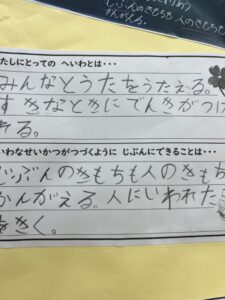 じぶんのきもちも人のきもち
かんがえる。
たしにとっての へいわとは・・・
みんなとうたをうたえる。
すきなときにでんきがつけ
れる。
いわなせいかつがつづくように じぶんにできることは・・・
じぶんのきもちも人のきもち
かんがえる。人にいわれたこ
をきく。